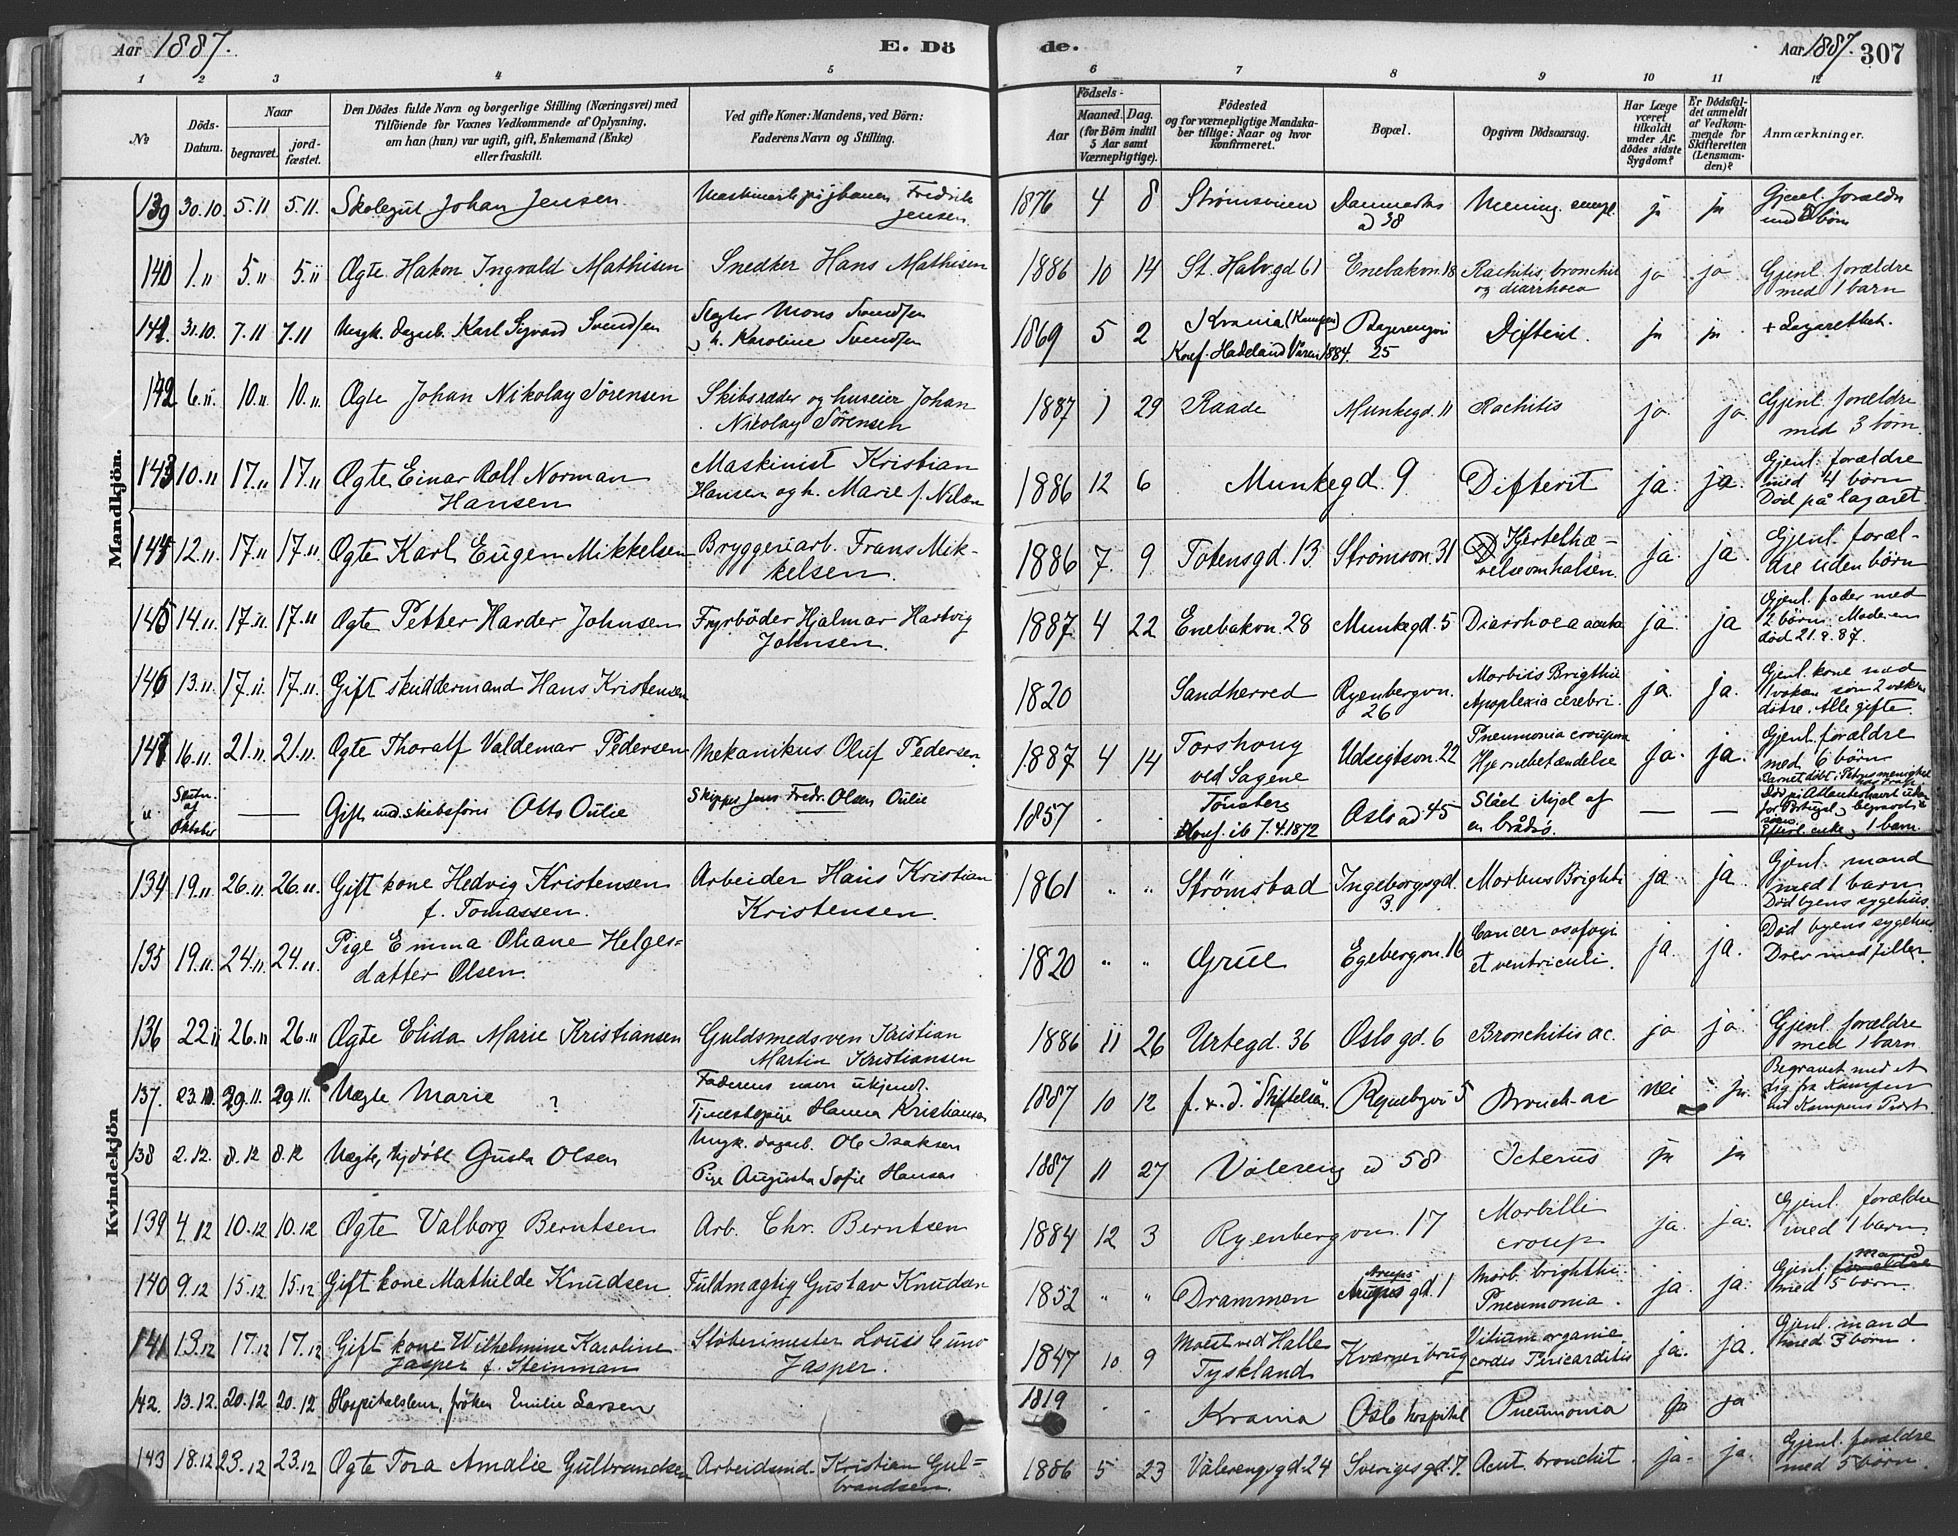 Aar 1887.
E. Dö
de.
Aar 1887.
307
1 2 3 4 5 6 7 8 9 10 11 12
No
Döds-Datum.
Naar
begravet.
jord-fæstet.
Den Dödes fulde Navn og borgerlige Stilling (Næringsvei) med
Tilföiende for Voxnes Vedkommende af Oplysning,
om han (hun) var ugift, gift, Enkemand (Enke)
eller fraskilt.
Ved gifte Koner: Mandens, ved Börn:
Faderens Navn og Stilling.
Födsels-
Aar
Maaned. Dag.
(for Börn indtil
5 Aar samt
Værnepligtige).
Födested
og for værnepligtige Mandska-
ber tillige: Naar og hvor
konfirmeret.
Bopæl.
Opgiven Dödsaarsag.
Har Læge
været
tilkaldt
under Af-
dödes sidste
Sygdom?
Er Dödsfal-
det anmeldt
af Vedkom-
mende for
Skifteretten
(Lensman-
den)?
Anmærkninger.
Mandkjön.
139 30.10. 5.11 5.11. Skolegut Johan Jensen Fredrik Jensen. 1876 4 8 ja ja Gjenl. forældr med börn
140 1.11 5.11 5.11 Ægte Hakon Ingvald Mathisen Snedker Hans Mathisen 1886 10 14 St. Halv.gd 61 Enebakvn. 18 Rachitis, bronchit og diarrhoea ja ja Gjenl. forældre med 1 barn
141. 31.10. 7.11 7.11 Ungk. dagarb. Karl Sigvard Svendsen Slagter Mons Svendsen h. Karoline Svendsen 1869 5 2 Krania (Kampen) Konf. Hadeland Våren 1884. 25 Difterit. ja ja + Lazarettet.
142 6.11. 10.11 10.11 Ægte Johan Nikolay Sørensen Skibsræder og huseier Johan Nikolay Sørensen 1887 1 29 Raade Munkegd. 11 Rachitis ja ja. Gjenl. forældre med 3 börn.
143 10.11 17.11 17.11 Ægte Einar Rolf Norman Hansen Maskinist Kristian Hansen og h. Marie f. Nilsen 1886 12 6 Munkegd. 9 Difterit ja. ja. Gjenl. forældre med 4 börn Död på lazaret.
144 12.11 17.11 17.11 Ægte Karl Eugen Mikkelsen Bryggeriarb. Frans Mikkelsen. 1886 7. 9. Totensgd. 13 Strømsvn. 31 Kjertelhæ-velse om halsen. ja ja Gjenl. foræl-dre uden börn
145 14.11 17.11 17.11 Ægte Petter Harder Johnsen Fyrböder Hjalmar Hartvig Johnsen. 1887 4 22 Enebakvn. 28 Munkegd. 5 Diarrhoea acuta ja ja Gjenl. fader med 2 börn. Moderen död 21.8.87.
146 13.11. 17.11. 17.11. Gift skuddermand Hans Kristensen 1820 Sandherred Ryenbergvn. 26 Morbus Brigthii Apoplexia cerebri. ja. ja. Gjenl. kone med Alle gifte.
147 16.11. 21.11 21.11. Ægte Thoralf Valdemar Pedersen Mekanikus Oluf Pedersen 1887 4 14 Torshoug ved Sagene Udsigtsvn. 22 Pneumonia crouposa Hjernebetændelse ja. ja. Gjenl. forældre med 6 börn Barnet döbt i Petrus menighed
" Slutn. af Oktober — — Gift Otto Oulie Skipper Jens Fredr. Olsen Oulie 1857 . . Tönsberg Konf. ib 7.4.1872 Oslo ad. 45 Slået ihjel af en brådsö. — — Död på Atlanterhavet for Portugal, begravet i Efterl. enke, 1 barn.
Kvindekjön
134 19.11 26.11. 26.11. Gift kone Hedvig Kristensen f. Tomassen. Arbeider Hans Kristian Kristensen. 1861 " " Strømstad Ingeborgsgd. 3. Morbus Brighti ja ja. Gjenl. mand med 1 barn Död byens sygehus.
135 19.11. 24.11. 24.11 Pige Emma Oliane Helges-datter Olsen. 1820 " " Grue Egebergvn. 16 Cancer osofogi et ventriculi. ja. ja. Död byens sygehus Drev med filler.
136 22.11 26.11 26.11 Ægte Elida Marie Kristiansen Guldsmedsven Kristian Martin Kristiansen 1886 11 26 Urtegd. 36 Oslo gd. 6 Bronchitis ac. ja ja. Gjenl. forældre med 1 barn
137. 23.10. 29.11. 29.11. Uægte Marie ? Faderens navn ukjendt. Tjenestepige Hanna Kristiansen 1887 10 12 "Stiftelsen". 5 Bronch. ac nei ja. Begravet med et lig fra Kampen
138 2.12. 8.12 8.12 Uægte, hjdöbt Gusta Olsen Ungk. dagarb. Ole Isaksen Pige Augusta Sofie Hansen 1887 11 27 Vålereng ad 58 Icterus ja ja
139 4.12 10.12 10.12 Ægte Valborg Berntsen Arb. Chr. Berntsen 1884 12 3 Ryenbergvn. 17 Morbilli croup ja. ja. Gjenl. forældre med 1 barn.
140 9.12 15.12 15.12 Gift kone Mathilde Knudsen Fuldmægtig Gustav Knudsen 1852 " " Drammen Arups gd. 1 Morb. brighthi. Pneumonia. ja. ja. Gjenl. mand med 5 börn.
141 13.12 17.12 17.12 Gift kone Wilhelmine Karoline Jasper f. Steinman Støberimester Louis Cuno Jasper. 1847 10 9 ved Halle Tyskland Kværnerbrug Vitium organic. cordis Pericarditis ja. ja. Gjenl. mand med 3 börn.
142. 13.12. 20.12 20.12 Hospitalslem, frøken Emilie Larsen 1819 . . Krania Oslo hospital Pneumonia ja ja
143 18.12 23.12 23.12 Ægte Tora Amalie Gulbrandsen Arbeidsmd. Kristian Gul-brandsen. 1886 5 23 Vålerengsgd. 24 Sverigesgd. 7. Acut. bronchit ja. ja. Gjenl. forældre med 5 börn.